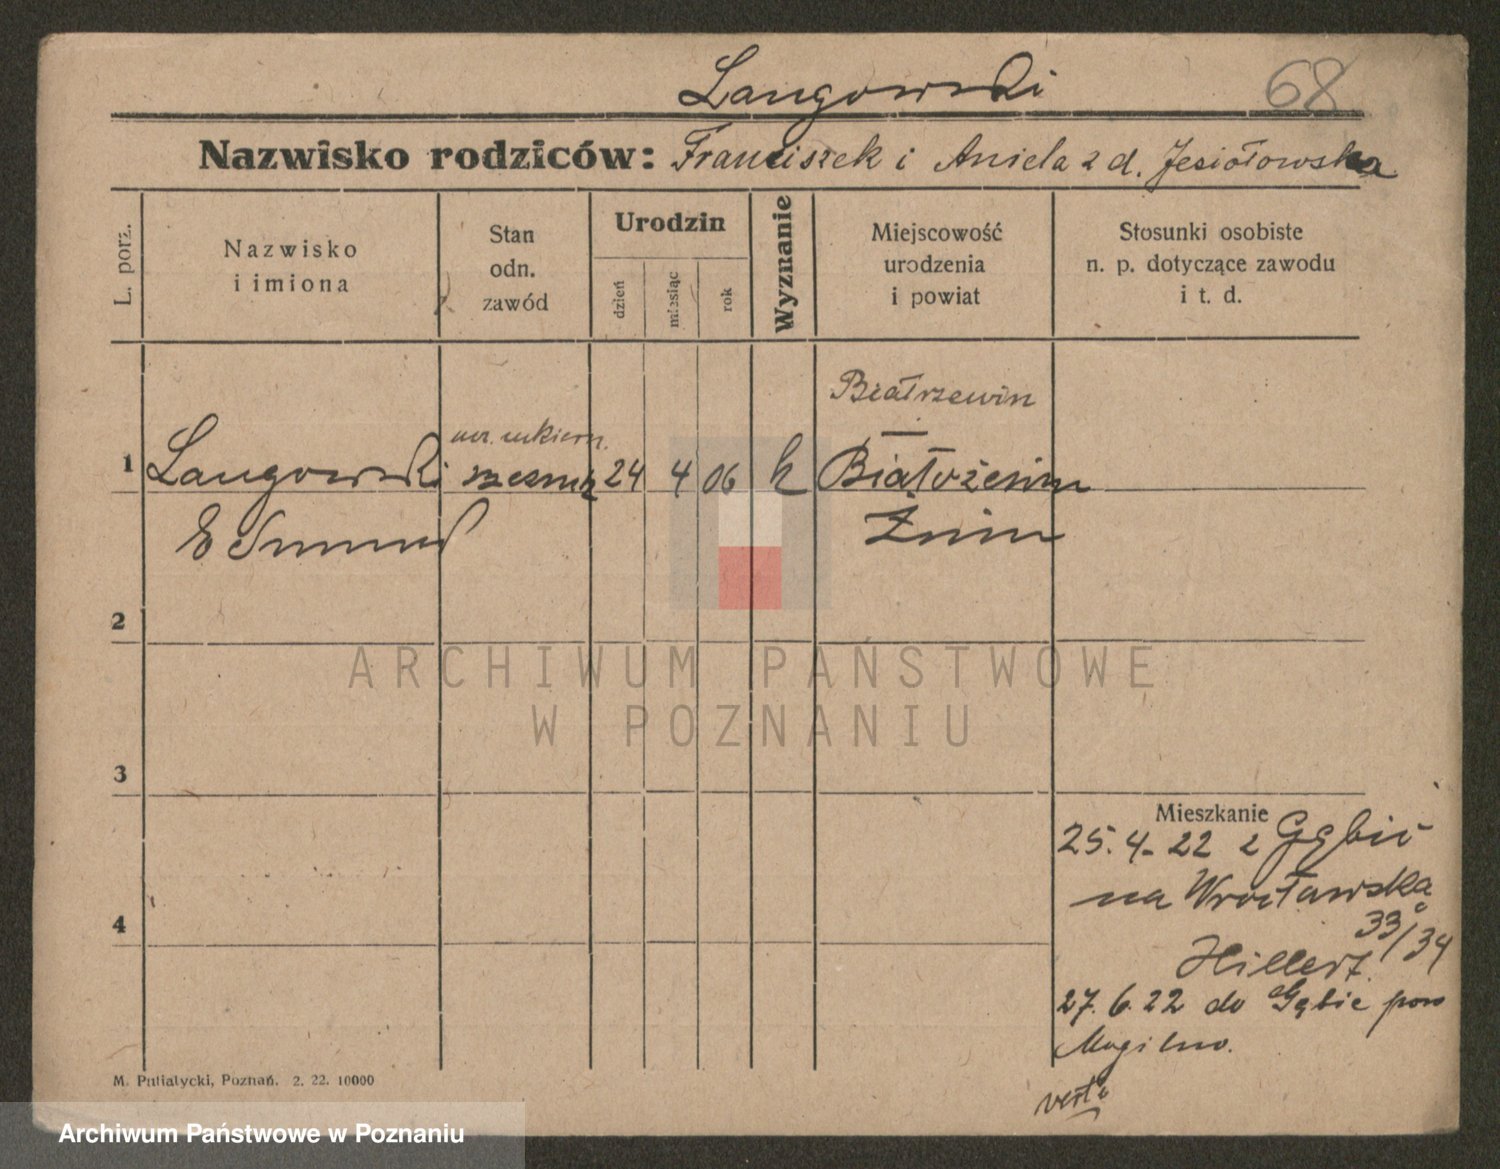 Langowski
68
Nazwisko rodziców: Franciszek i Aniela z d. Jesiołowska
L. porz.
Nazwisko
i imiona
Stan
odn.
zawód
Urodzin
dzień
miesiąc
rok
Wyznanie
Miejscowość
urodzenia
i powiat
Stosunki osobiste
n. p. dotyczące zawodu
i t. d.
Białrzewin
ucz. cukiern.
1 Langowski 24 4 06 k Białożewin
Edmund Żnin
2
ARCHIWUM PAŃSTWOWE
W POZNANIU
3
Mieszkanie
25. 4. 22 z Gębic
na Wrocławską
4
33/34
Hillert
27. 6. 22 do Gębic pow
Mogilno.
M. Putiatycki, Poznań. 2. 22. 10000
verte
Archiwum Państwowe w Poznaniu